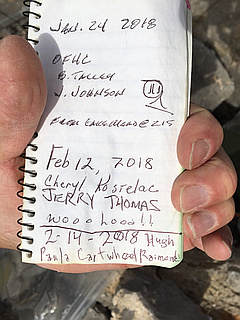 Jan. 24 2018
OFHC
B. Talley
J. Johnson
From @ 215
Feb 12, 2018
Cheryl Kostelac
JERRY THOMAS
wooohooo!!
2-14-2018 Hugh
Paula Cartwheel Raimondi